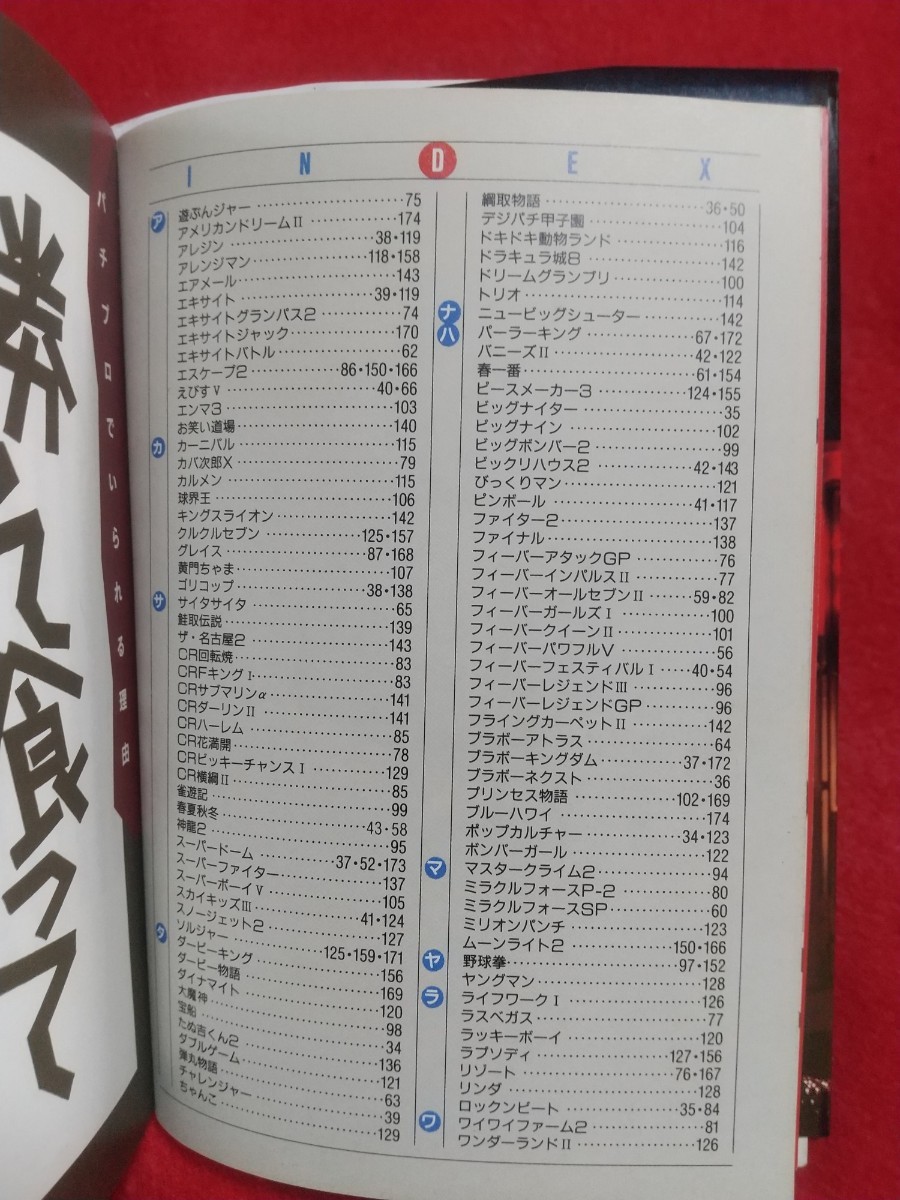 パチプロでいられる理由
勝って食って
INDEX
ア 遊ぶんジャー 75
アメリカンドリームⅡ 174
アレジン 38・119
アレンジマン 118・158
エアメール 143
エキサイト 39・119
エキサイトグランパス2 74
エキサイトジャック 170
エキサイトバトル 62
エスケープ2 86・150・166
えびすⅤ 40・66
エンマ3 103
お笑い道場 140
カ カーニバル 115
カバ次郎X 79
カルメン 115
球界王 106
キングスライオン 142
クルクルセブン 125・157
グレイス 87・168
黄門ちゃま 107
ゴリコップ 38・138
サ サイタサイタ 65
鮭取伝説 139
ザ・名古屋2 143
CR回転焼 83
CRFキングⅠ 83
CRサブマリンα 141
CRダーリンⅡ 141
CRハーレム 85
CR花満開 78
CRビッキーチャンスⅠ 129
CR横綱Ⅱ 85
雀遊記 99
春夏秋冬 43・58
神龍2 95
スーパードーム 37・52・173
スーパーファイター 137
スーパーボーイⅤ 105
スカイキッズⅢ 41・124
スノージェット2 127
ソルジャー 125・159・171
タ ダービーキング 156
ダービー物語 169
ダイナマイト 120
大魔神 98
宝船 34
たぬ吉くん2 136
ダブルゲーム 121
弾丸物語 63
チャレンジャー 39
ちゃんこ 129
綱取物語 36・50
デジパチ甲子園 104
ドキドキ動物ランド 116
ドラキュラ城8 142
ドリームグランプリ 100
トリオ 114
ナ ニュービッグシューター 142
ハ パーラーキング 67・172
バニーズⅡ 42・122
春一番 61・154
ピースメーカー3 124・155
ビッグナイター 35
ビッグナイン 102
ビッグボンバー2 99
ビックリハウス2 42・143
びっくりマン 121
ピンボール 41・117
ファイター2 137
ファイナル 138
フィーバーアタックGP 76
フィーバーインパルスⅡ 77
フィーバーオールセブンⅡ 59・82
フィーバーガールズⅠ 100
フィーバークイーンⅡ 101
フィーバーパワフルⅤ 56
フィーバーフェスティバルⅠ 40・54
フィーバーレジェンドⅢ 96
フィーバーレジェンドGP 96
フライングカーペットⅡ 142
ブラボーアトラス 64
ブラボーキングダム 37・172
ブラボーネクスト 36
プリンセス物語 102・169
ブルーハワイ 174
ポップカルチャー 34・123
ボンバーガール 122
マ マスタークライム2 94
ミラクルフォースP-2 80
ミラクルフォースSP 60
ミリオンパンチ 123
ムーンライト2 150・166
ヤ 野球拳 97・152
ヤングマン 128
ラ ライフワークⅠ 126
ラスベガス 77
ラッキーボーイ 120
ラプソディ 127・156
リゾート 76・167
リンダ 128
ロックンビート 35・84
ワ ワイワイファーム2 81
ワンダーランドⅡ 126